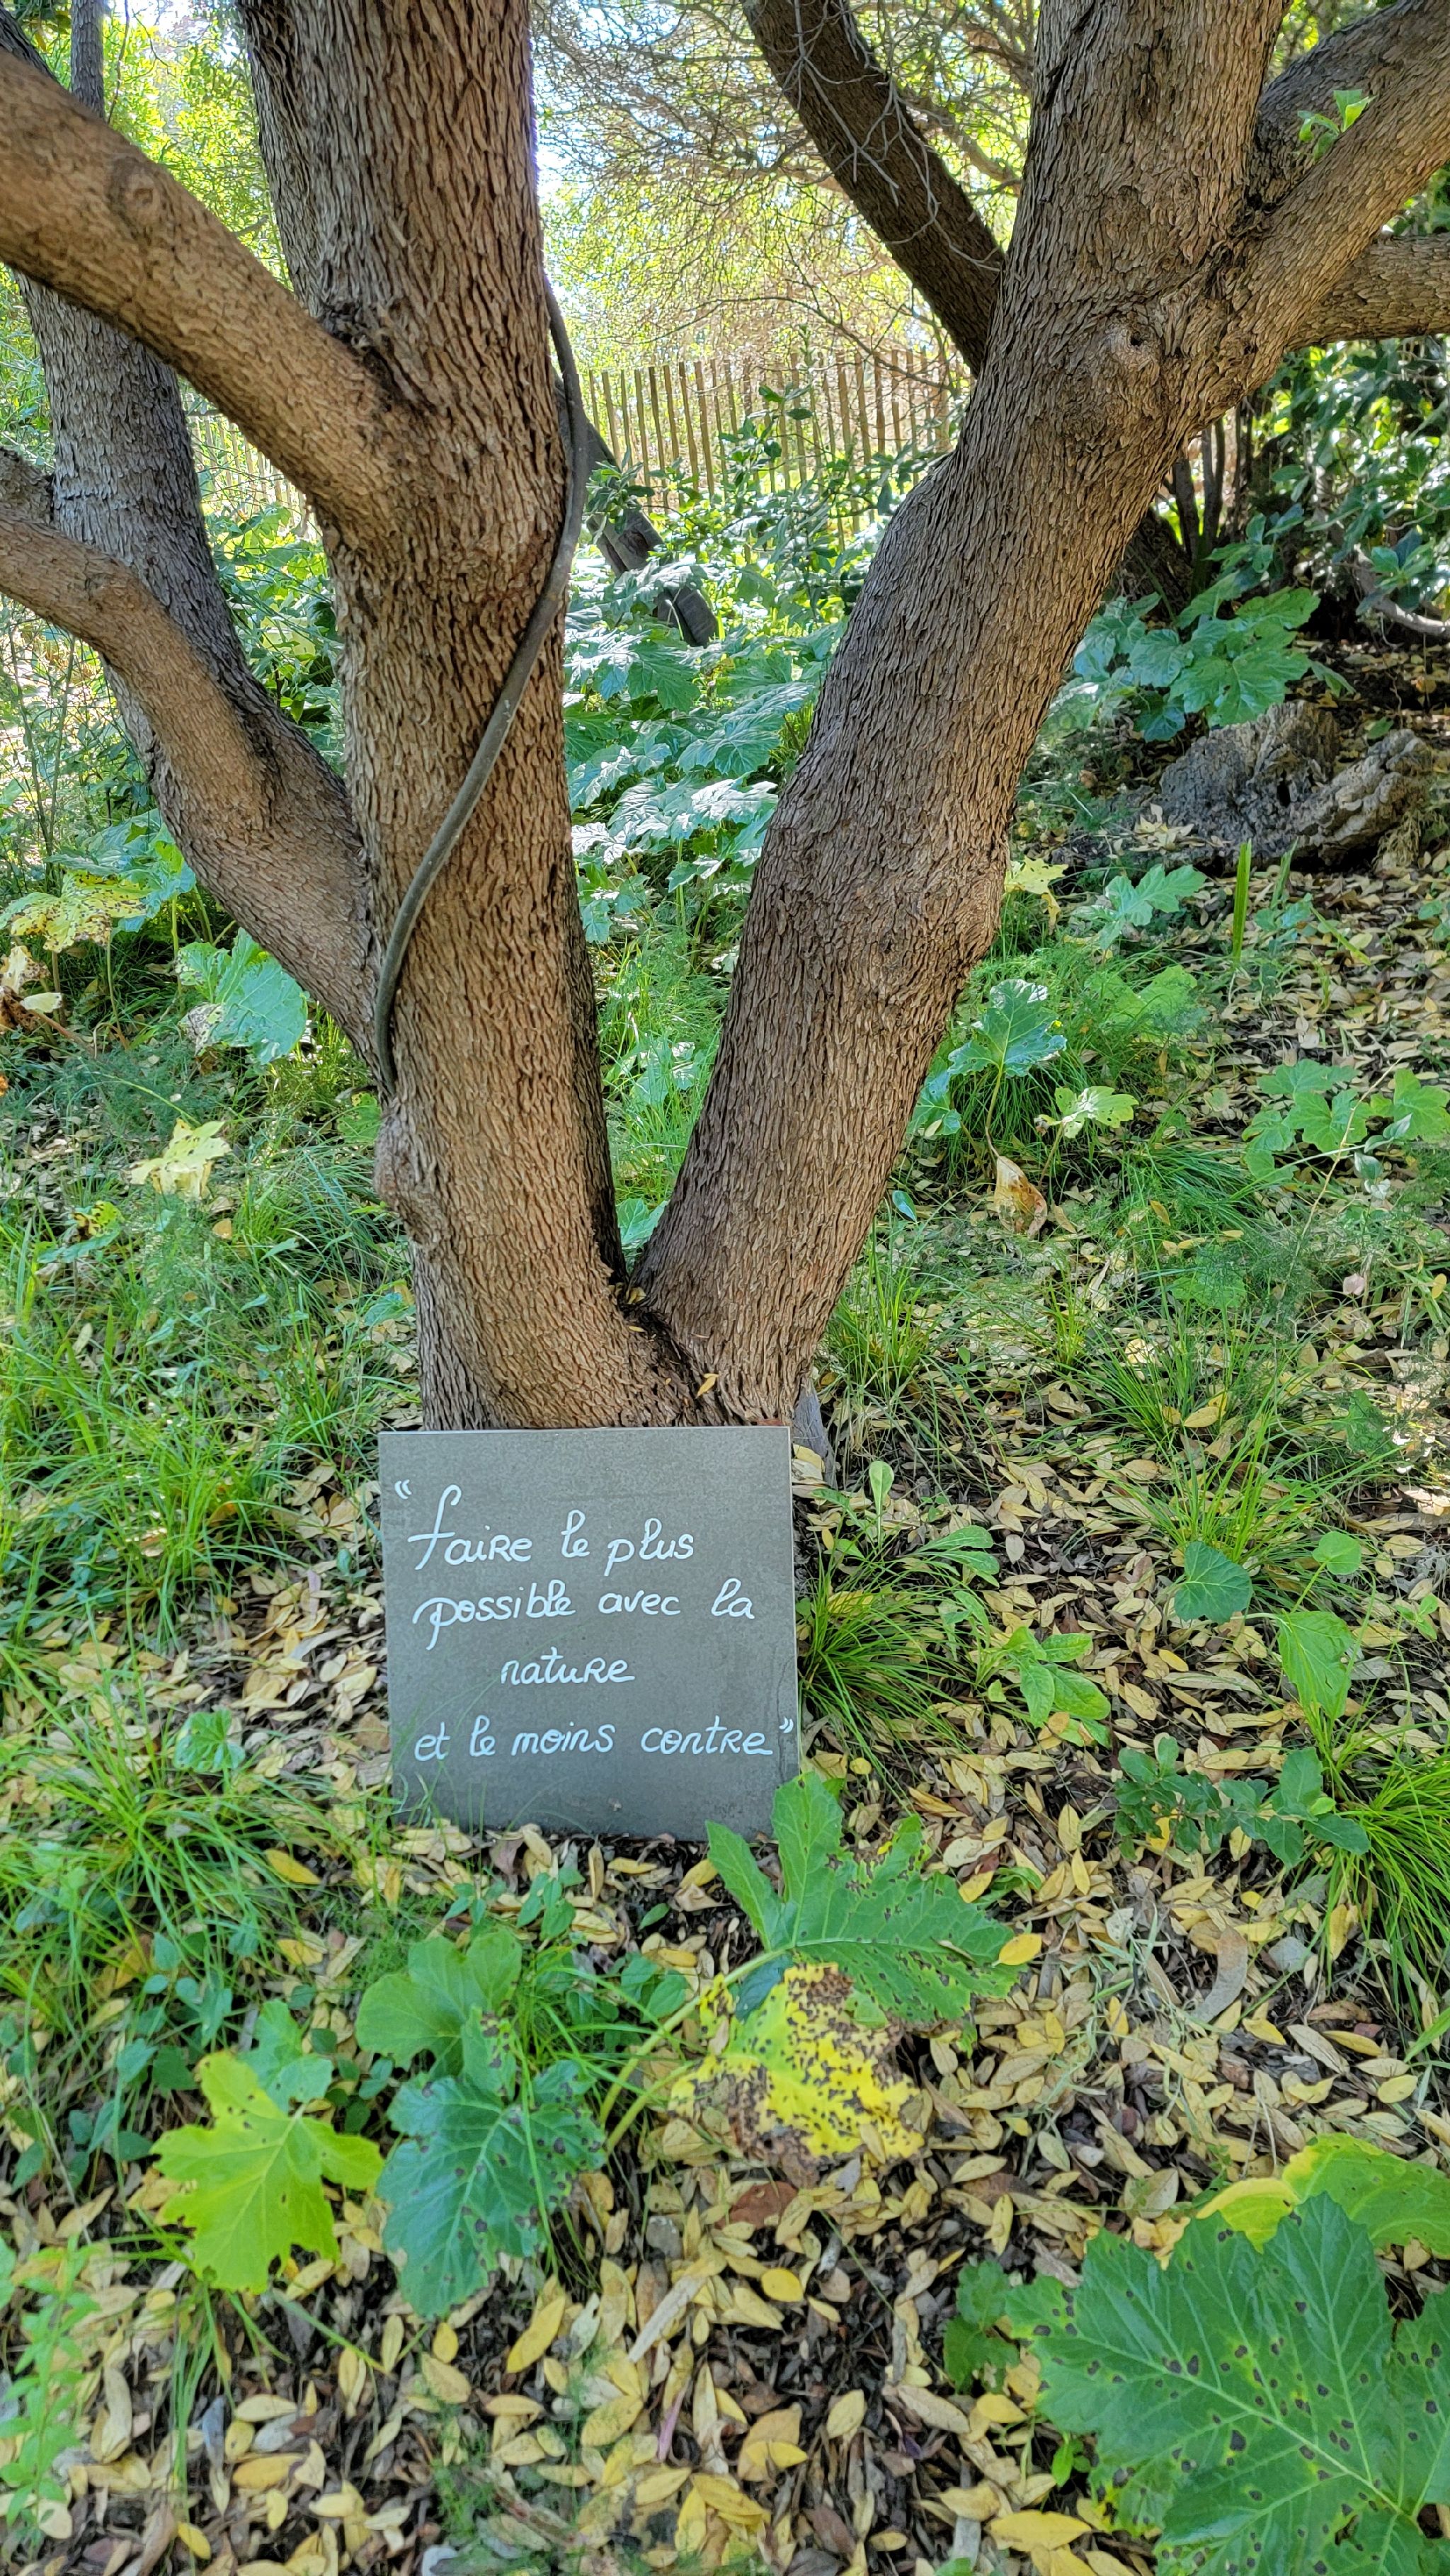 “faire le plus
possible avec la
nature
et le moins contre”